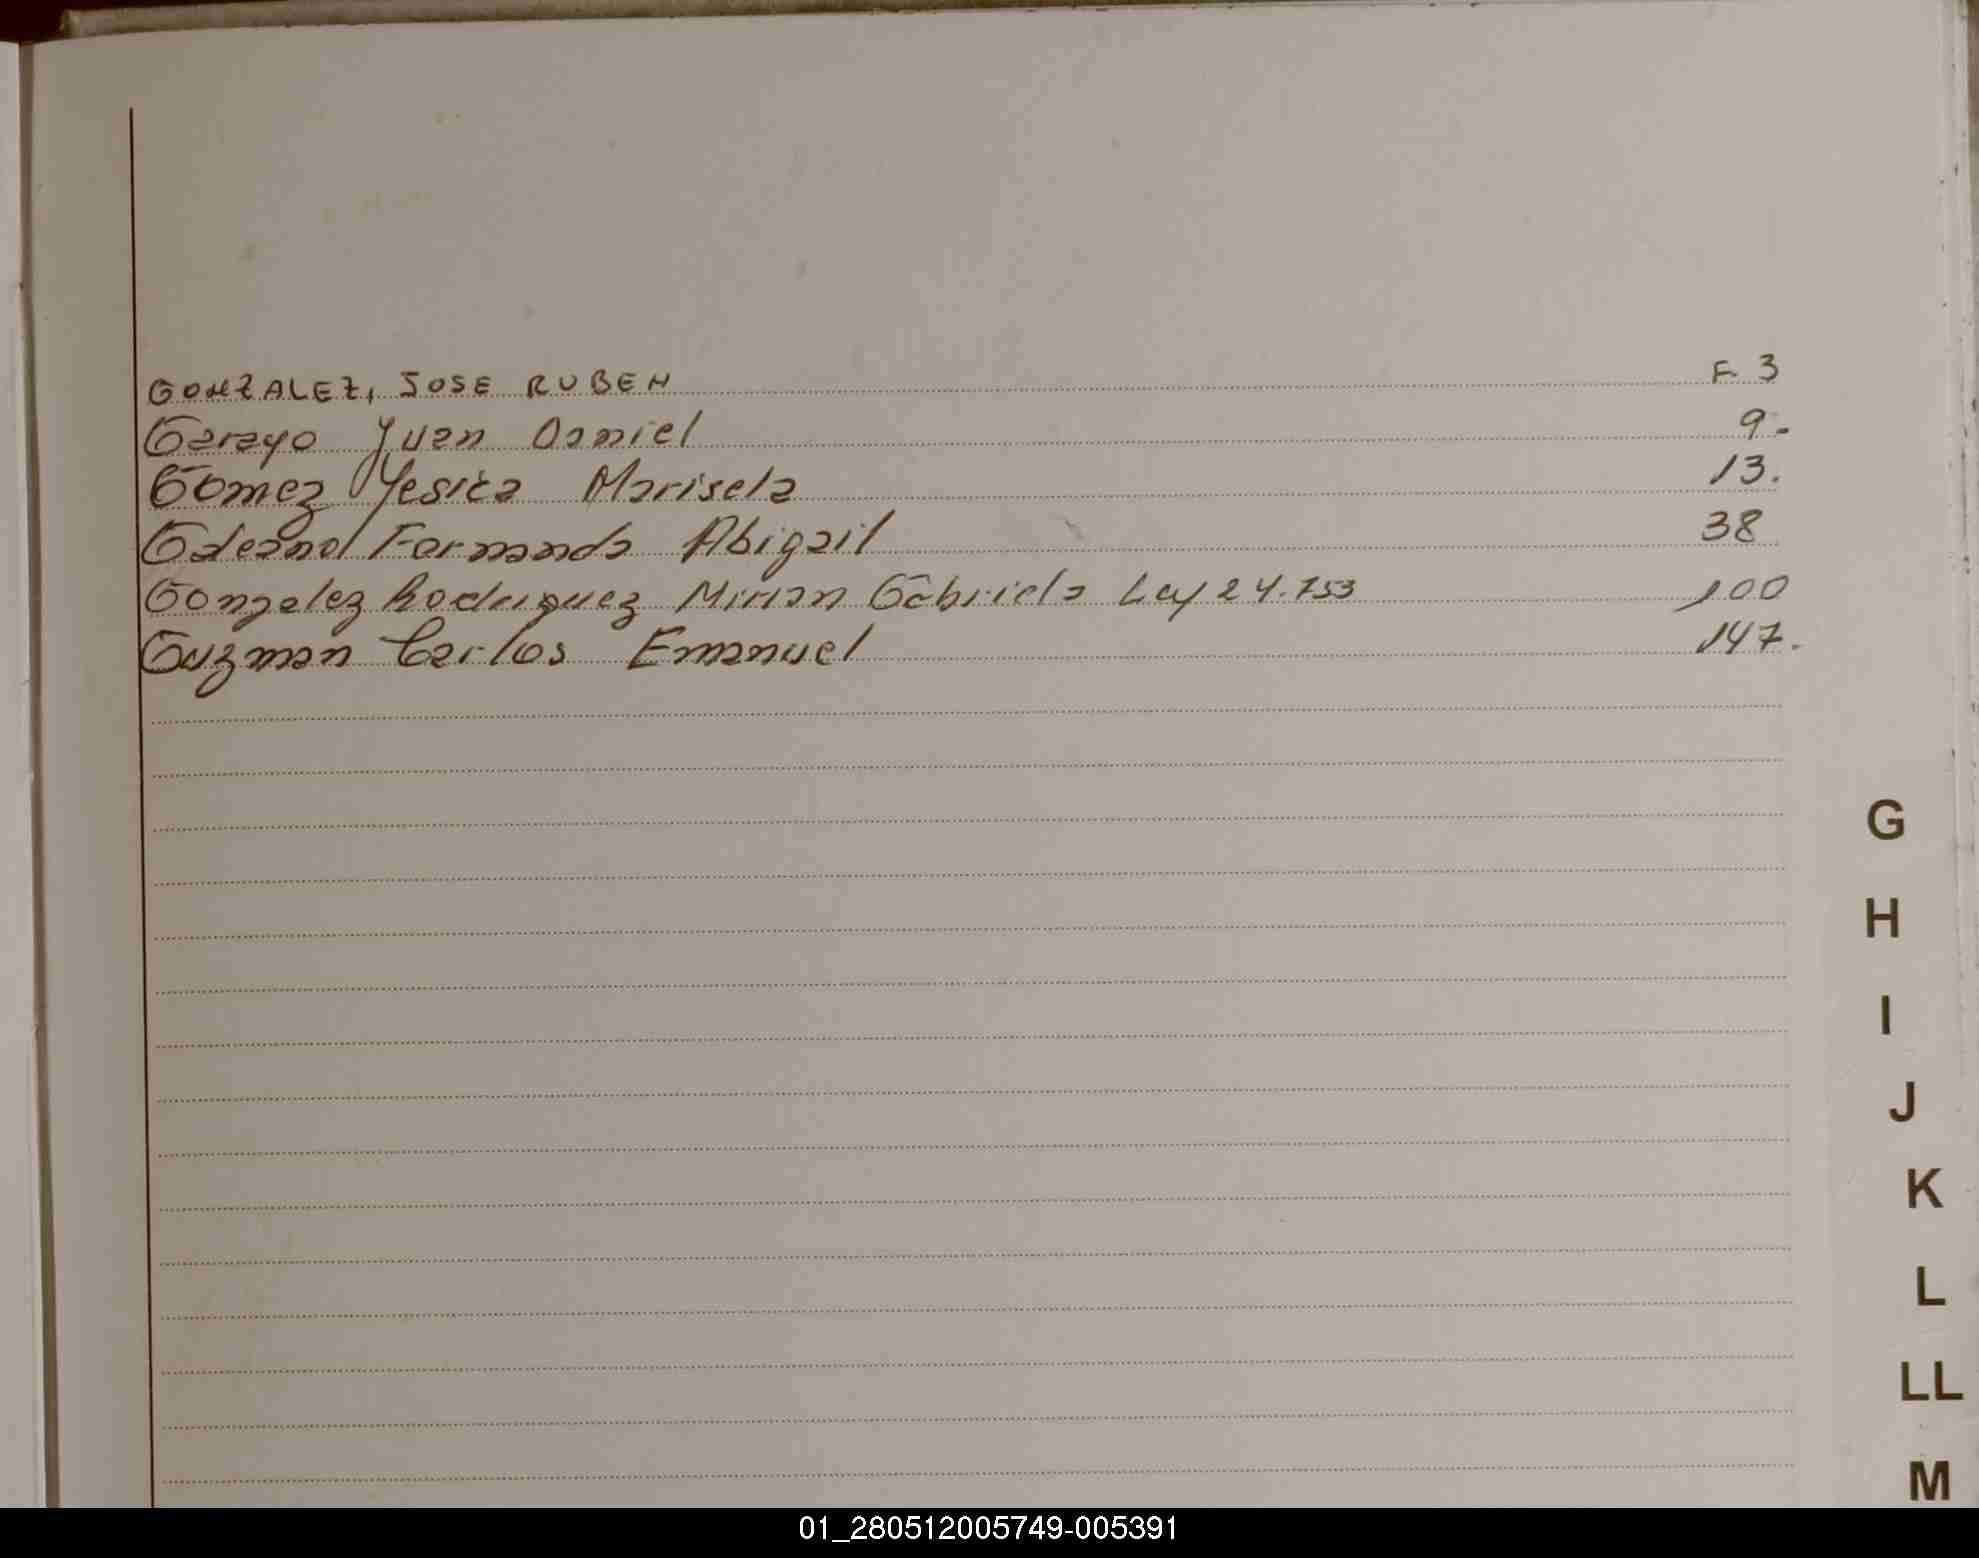 GONZALEZ, JOSE RUBEN F. 3
Garayo Juan Daniel 9.
Gomez Yesica Marisela 13.
Galeano Fernanda Abigail 38
Gonzalez Rodriguez Mirian Gabriela Ley 24.753 100
Guzman Carlos Emanuel 147.
G
H
I
J
K
L
LL
M
01_280512005749-005391